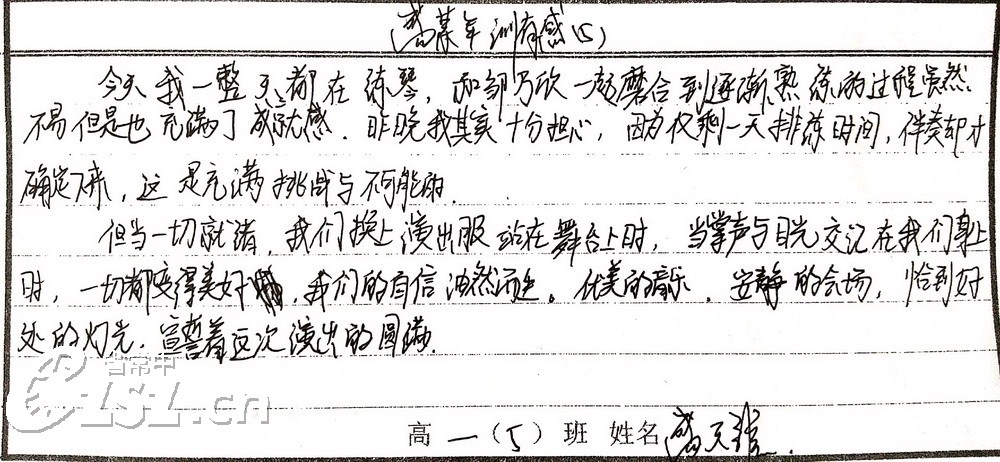 军训有感(5)
今天我一整天都在练琴，和邹乃欣一起磨合到逐渐熟练的过程虽然
不易但是也充满了成就感．昨晚我其实十分担心，因为仅剩一天排练时间，伴奏却才
确定下来，这是充满挑战与不可能的．
但当一切就绪，我们换上演出服站在舞台上时，当掌声与目光交汇在我们身上
时，一切都变得美好，我们的自信油然而生。优美的音乐，安静的会场，恰到好
处的灯光．宣誓着这次演出的圆满．
省常中
CZSZ.cn
高一（5）班 姓名 天